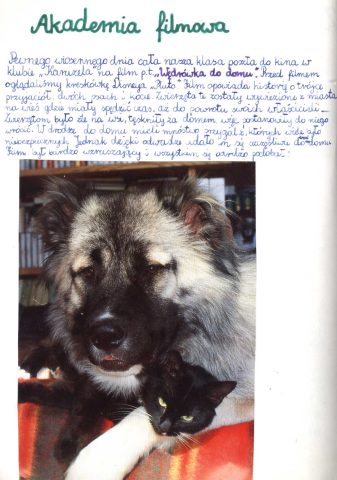 Akademia filmowa
Pewnego wiosennego dnia cała nasza klasa poszła do kina w
klubie „Karuzela" na film p.t. „Wędrówka do domu". Przed filmem
oglądaliśmy kreskówkę Disneya „Pluto". Film opowiada historię o trójce
przyjaciół dwóch psach i kocie. Zwierzęta te zostały wywiezione z miasta
na wieś gdzie miały spędzić czas, aż do powrotu swoich właścicieli.
Zwierzętom było źle na wsi, tęskniły za domem, więc postanowiły do niego
wrócić. W drodze do domu mieli mnóstwo przygód z których wiele było
niebezpiecznych. Jednak dzięki odwadze udało im się szczęśliwie do domu.
Film był bardzo wzruszający i wszystkim się bardzo podobał.